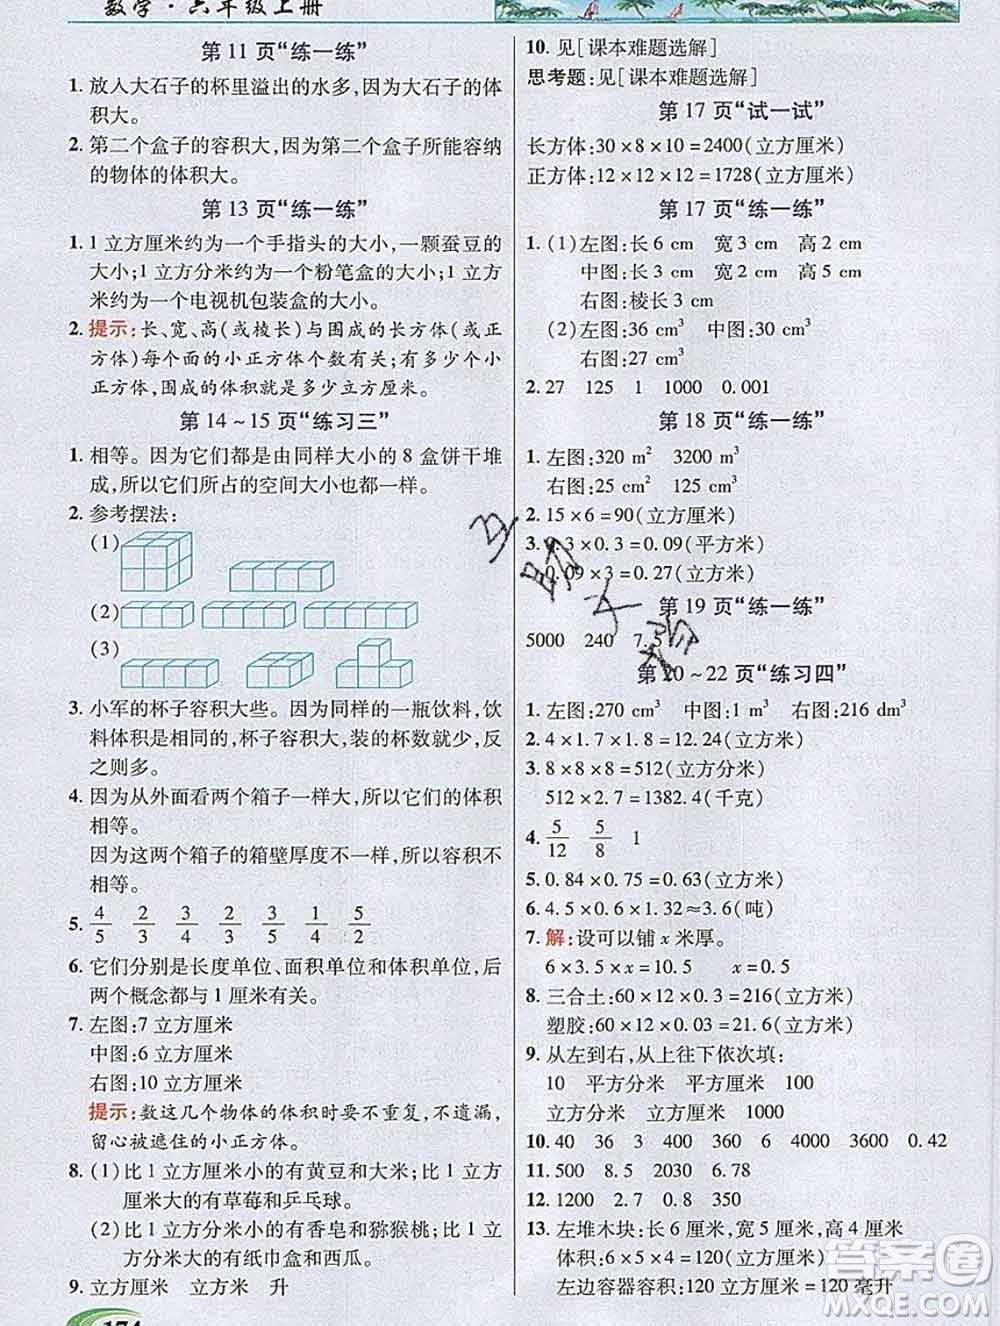 数学·六年级上册
第 11 页“练一练”
1. 放入大石子的杯里溢出的水多,因为大石子的体
积大。
2. 第二个盒子的容积大,因为第二个盒子所能容纳
的物体的体积大。
第 13 页“练一练”
1. 1 立方厘米约为一个手指头的大小,一颗蚕豆的
大小;1 立方分米约为一个粉笔盒的大小;1 立方
米约为一个电视机包装盒的大小。
2. 提示:长、宽、高(或棱长)与围成的长方体(或正
方体)每个面的小正方体个数有关;有多少个小
正方体,围成的体积就是多少立方厘米。
第 14～15 页“练习三”
1. 相等。因为它们都是由同样大小的 8 盒饼干堆
成,所以它们所占的空间大小也都一样。
2. 参考摆法:
(1)
(2)
(3)
3. 小军的杯子容积大些。因为同样的一瓶饮料,饮
料体积是一定的,杯子容积大,装的杯数就少,反
之则多。
4. 因为从外面看两个箱子一样大,所以它们的体积
相等。
因为这两个箱子的箱壁厚度不一样,所以容积不
相等。
5. 4/5 2/3 3/4 2/3 3/4 1/4 5/2
6. 它们分别是长度单位、面积单位和体积单位,后
两个概念都与 1 厘米有关。
7. 左图:7 立方厘米
中图:6 立方厘米
右图:10 立方厘米
提示:数这几个物体的体积时要不重复,不遗漏,
留心被遮住的小正方体。
8. (1)比 1 立方厘米小的有黄豆和大米;比 1 立方
厘米大的有草莓和乒乓球。
(2)比 1 立方分米小的有香皂和猕猴桃;比 1 立
方分米大的有纸巾盒和西瓜。
9. 立方厘米 立方米 升
174
10. 见[课本难题选解]
思考题:见[课本难题选解]
第 17 页“试一试”
长方体:30×8×10=2400(立方厘米)
正方体:12×12×12=1728(立方厘米)
第 17 页“练一练”
1. (1)左图:长 6 cm 宽 3 cm 高 2 cm
中图:长 3 cm 宽 2 cm 高 5 cm
右图:棱长 3 cm
(2)左图:36 cm³ 中图:30 cm³
右图:27 cm³
2. 27 125 1 1000 0.001
第 18 页“练一练”
1. 左图:320 m² 3200 m³
右图:25 cm² 125 cm³
2. 15×6=90(立方厘米)
3. 0.3×0.3=0.09(平方米)
0.09×3=0.27(立方米)
第 19 页“练一练”
5000 240 7.3
第 20～22 页“练习四”
1. 左图:270 cm³ 中图:1 m³ 右图:216 dm³
2. 4×1.7×1.8=12.24(立方米)
3. 8×8×8=512(立方分米)
512×2.7=1382.4(千克)
4. 5/12 5/8 1
5. 0.84×0.75=0.63(立方米)
6. 4.5×0.6×1.32≈3.6(吨)
7. 解:设可以铺 x 米厚。
6×3.5×x=10.5 x=0.5
8. 三合土:60×12×0.3=216(立方米)
塑胶:60×12×0.03=21.6(立方米)
9. 从左到右,从上往下依次填:
10 平方分米 平方米 100
立方分米 立方米 1000
10. 40 36 3 400 360 6 4000 3600 0.42
11. 500 8.5 2030 6.78
12. 1200 2.7 0.8 350
13. 左堆木块:长 6 厘米,宽 5 厘米,高 4 厘米
体积:6×5×4=120(立方厘米)
左边容器容积:120 立方厘米=120 毫升
答案圈
MXQE.COM